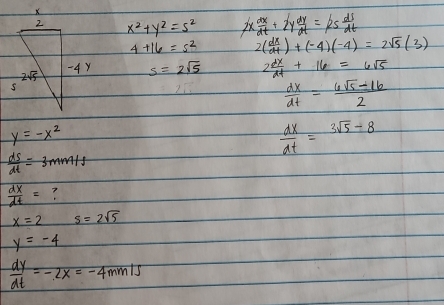 x
2
2√5
s
-4 y
x² + y² = s²
4 + 16 = s²
s = 2√5
2x dx/dt + 2y dy/dt = 2s ds/dt
2(dx/dt) + (-4)(-4) = 2√5 (3)
2 dx/dt + 16 = 6√5
dx/dt = 6√5 - 16 / 2
dx/dt = 3√5 - 8
y = -x²
ds/dt = 3mm/s
dx/dt = ?
x = 2 s = 2√5
y = -4
dy/dt = -2x = -4mm/s